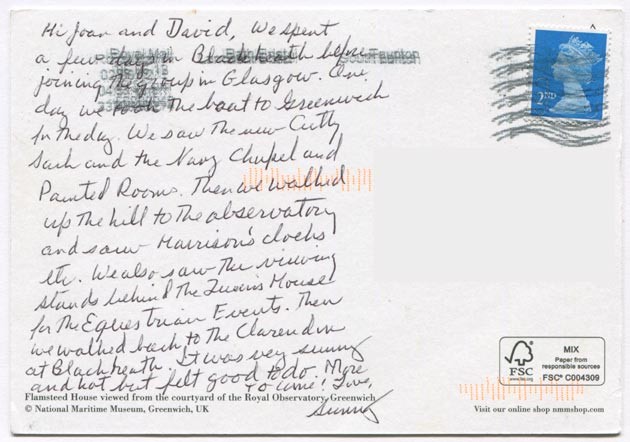 Hi Joan and David, We spent
a few days in Blackheath before
joining the group in Glasgow. One
day we took the boat to Greenwich
for the day. We saw the new Cutty
Sark and the Navy Chapel and
Painted Rooms. Then we walked
up the hill to the observatory
and saw Harrison's clocks
etc. We also saw the viewing
stands behind the Queens House
for the Equestrian Events. Then
we walked back to the Clarendon
at Blackheath. It was very sunny
and hot but felt good to do. More
to come! Love,
Sunny
Flamsteed House viewed from the courtyard of the Royal Observatory, Greenwich
© National Maritime Museum, Greenwich, UK
2ND
FSC
MIX
Paper from
responsible sources
FSC® C004309
Visit our online shop nmmshop.com